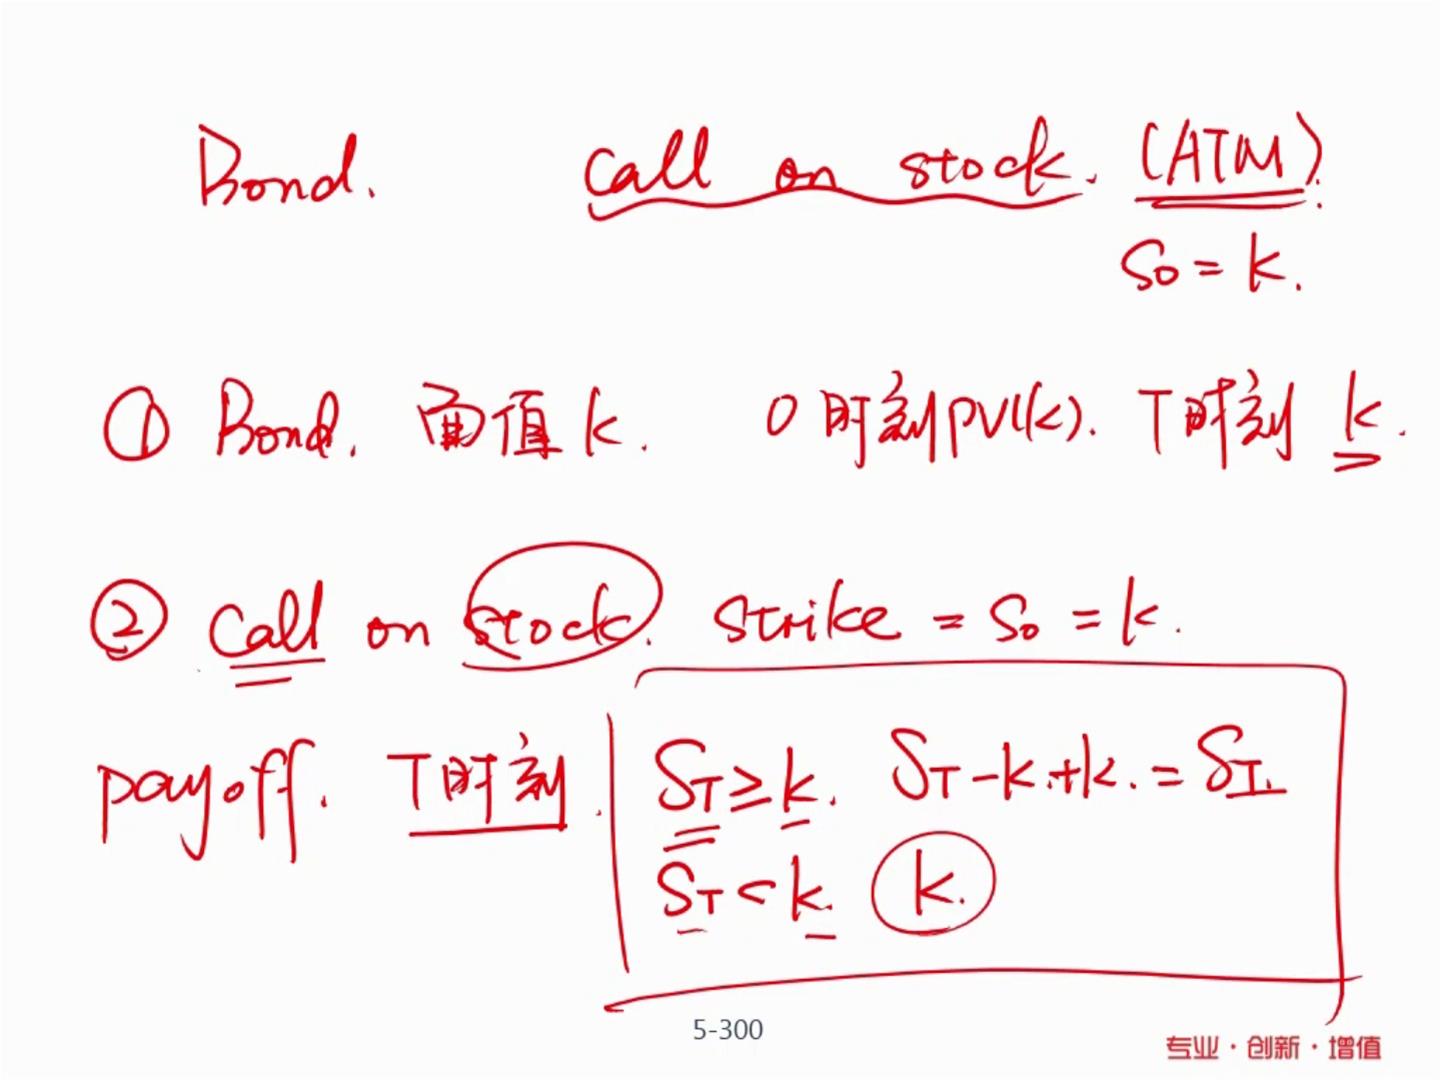 Bond. call on stock. (ATM).
S0 = k.
① Bond. 面值 k. 0时刻 PV(k). T时刻 k.
② call on stock. strike = S0 = k.
payoff. T时刻. ST ≥ k. ST - k + k. = ST.
ST < k. k.
5-300
专业·创新·增值